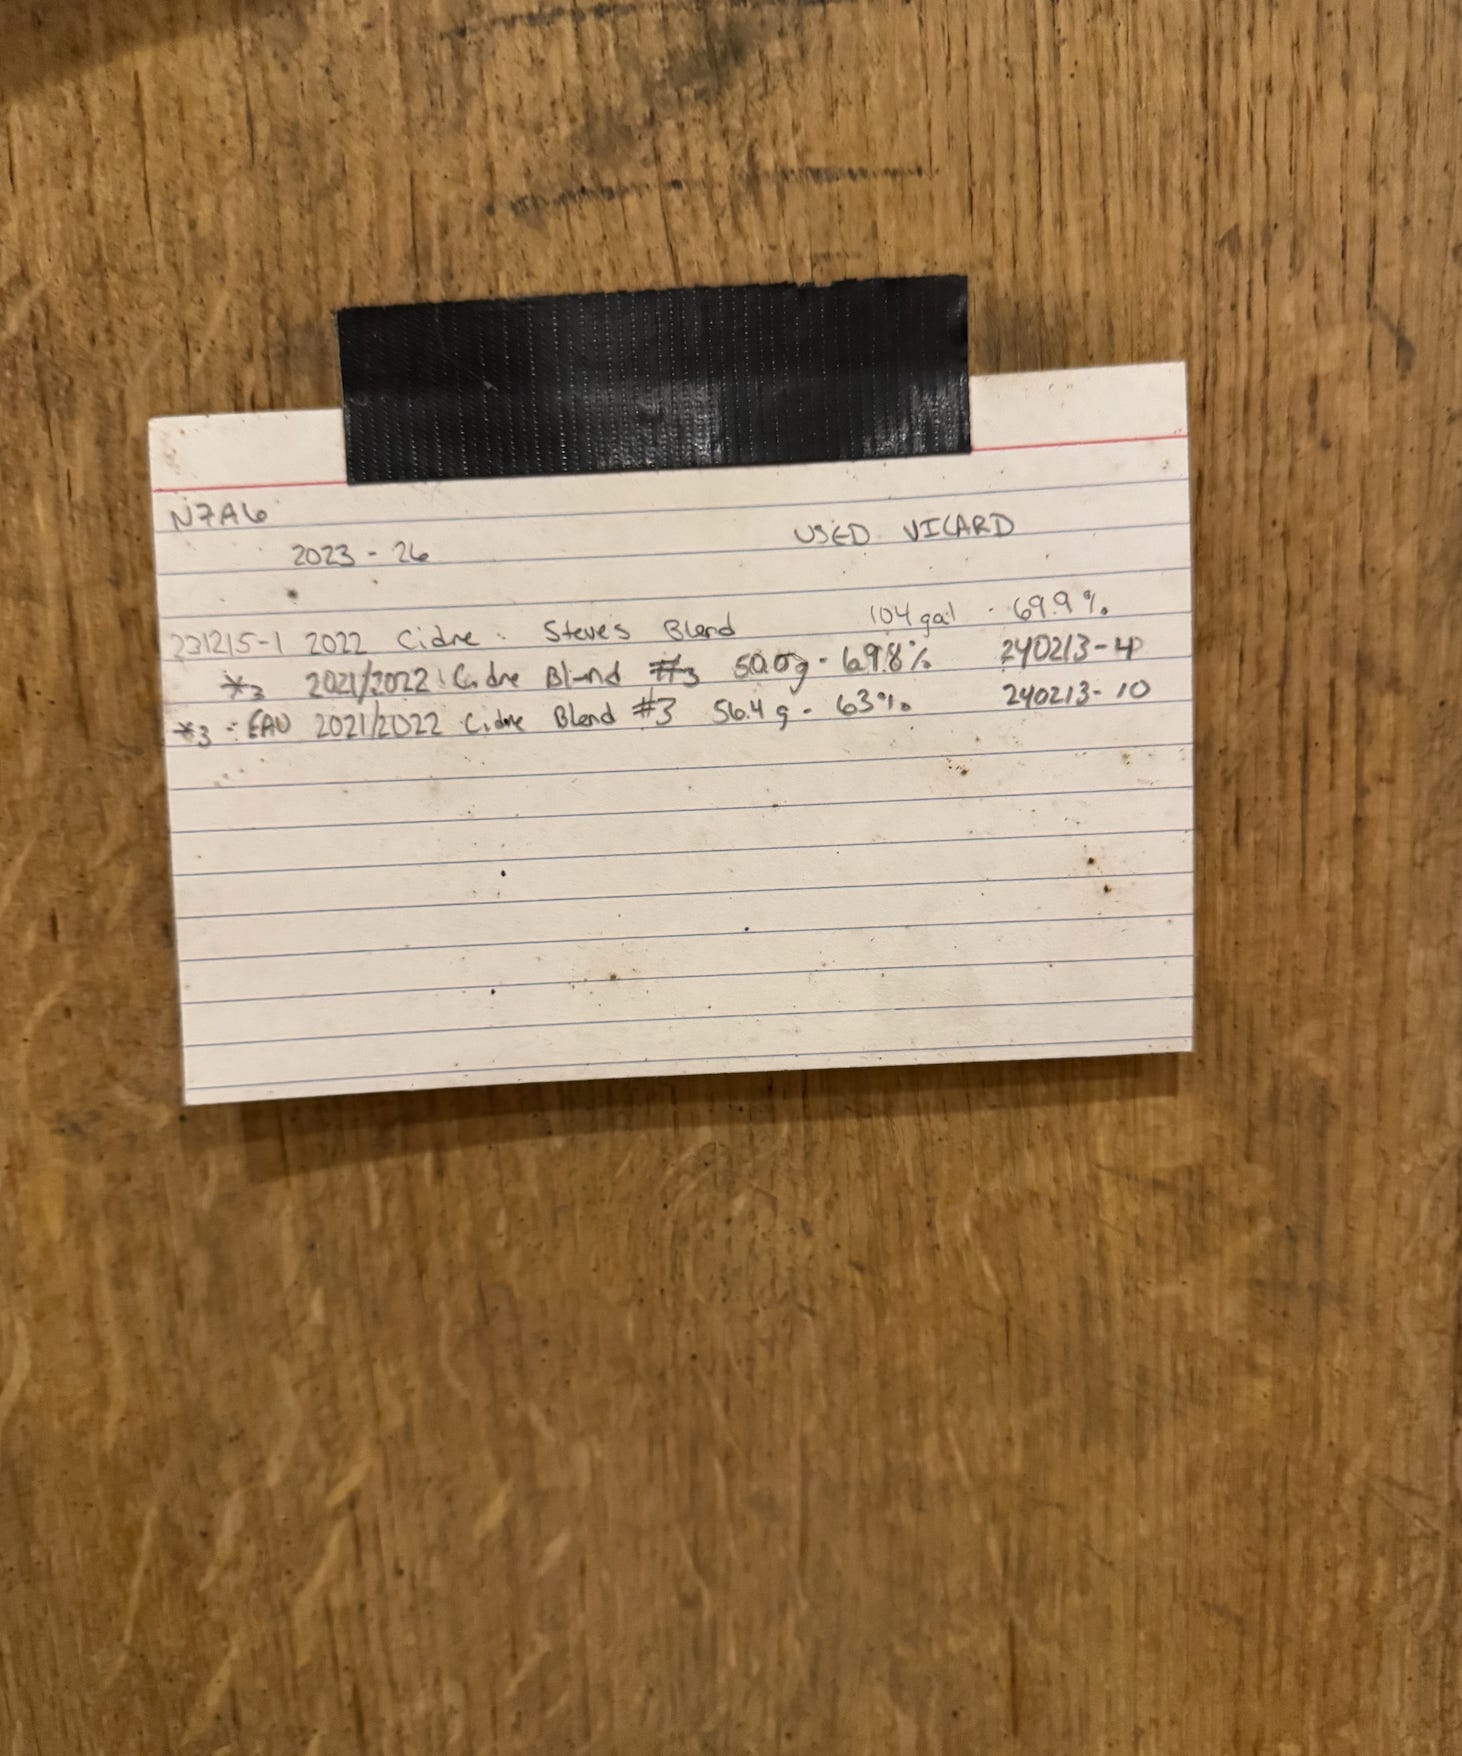 N7A6
2023 - 26 USED VICARD
231215-1 2022 Cidre: Steve's Blend 104 gal - 69.9%
*3 2021/2022: Cidre Blend #3 50.0g - 69.8% 240213-4
*3 - EAU 2021/2022 Cidre Blend #3 56.4 g - 63% 240213-10